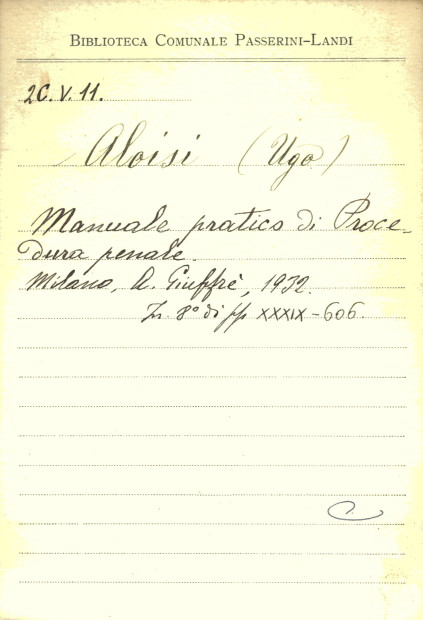 BIBLIOTECA COMUNALE PASSERINI-LANDI
2C.V.11.
Aloisi (Ugo)
Manuale pratico di Proce-
dura penale.
Milano, A. Giuffrè, 1932.
In 8° di pp XXXIX-606.
C